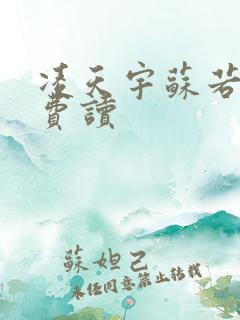 凌天宇蘇若
費讀
蘇妲己
未經同意禁止轉載